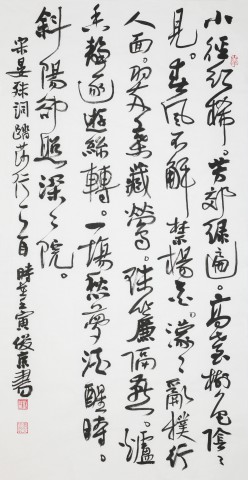 小徑紅稀。芳郊綠遍。高臺樹色陰〻
見。春風不解禁楊花。濛〻亂撲行
人面。翠葉藏鶯。珠簾隔燕。爐
香靜逐遊絲轉。一場愁夢酒醒時。
斜陽卻照深〻院。
宋晏殊詞踏莎行一首 時在壬寅俊書